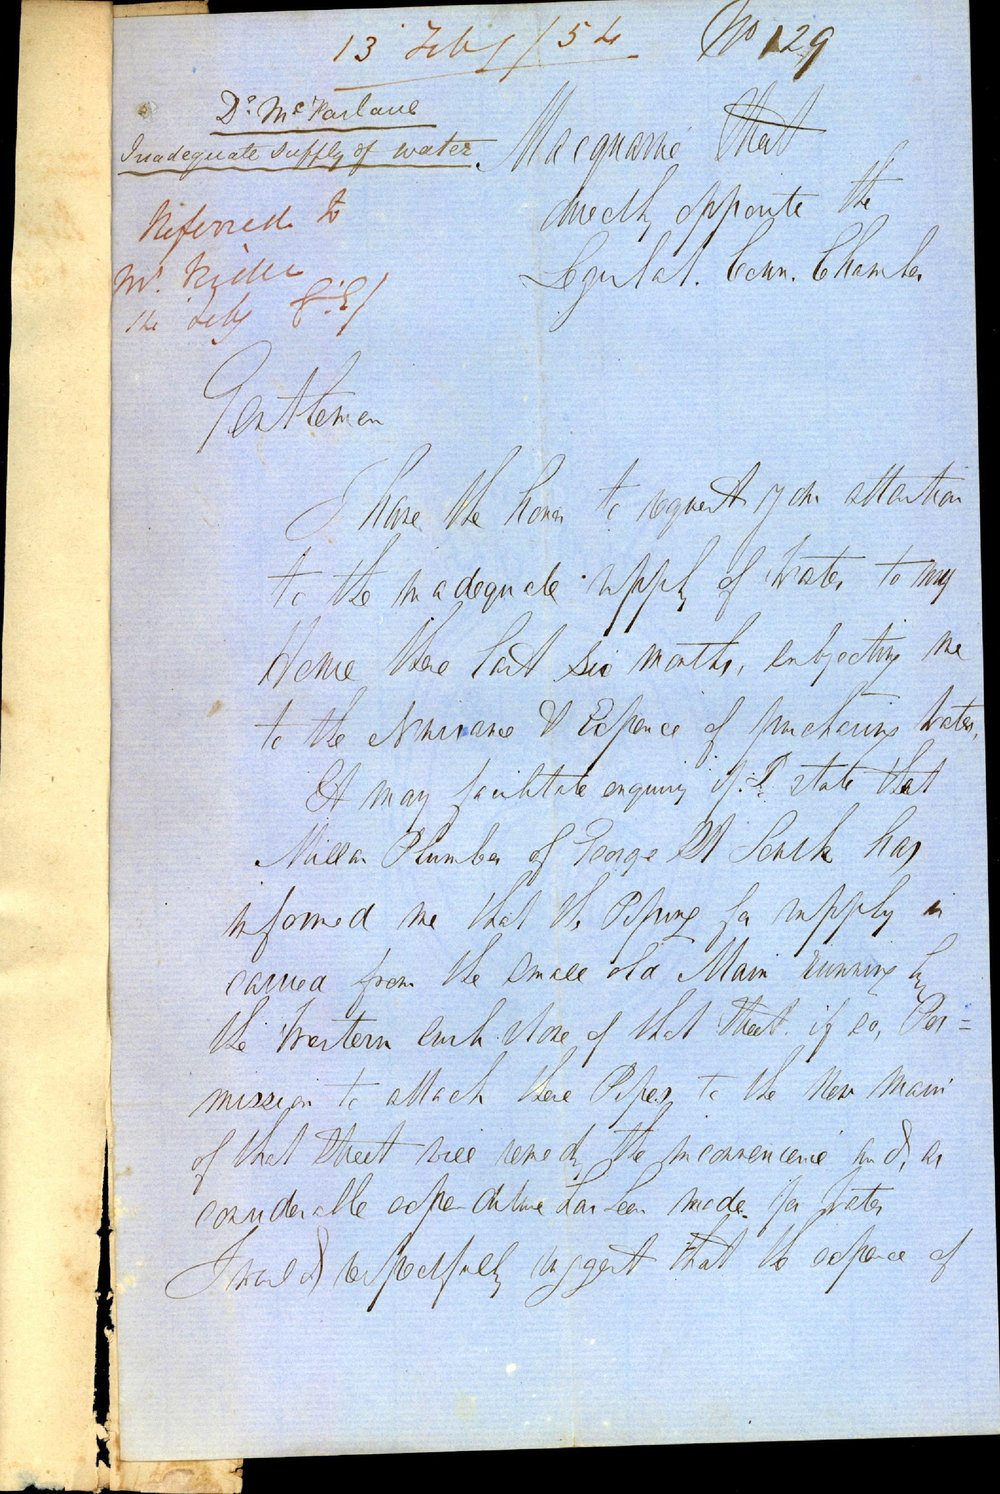 13 Feby / 54
No 129
Dr. McFarlane
Inadequate supply of water.
Macquarie Street
directly opposite the
Legislat. Coun. Chamber
Referred to
Mr. Rider
14 Feby
Gentlemen
I have the honor to request your attention
to the inadequate supply of Water to my
House these last six months, subjecting me
to the Nuisance & Expence of purchasing Water,
It may facilitate enquiry if I state that
Millar Plumber of George St South has
informed me that the Piping for supply is
carried from the small old Main running by
the Western curb stone of that Street. if so, Per=
mission to attach these Pipes to the New Main
of that Street will remedy the inconvenience and, as
considerable expenditure has been made for Water
I would respectfully suggest that the expence of